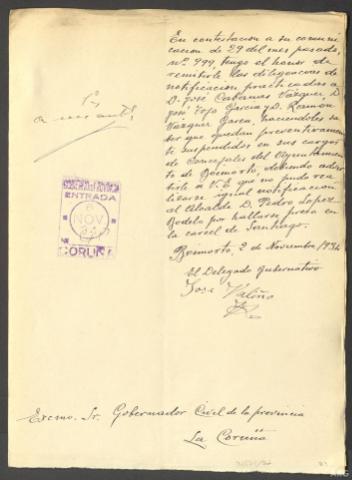 En contestacion a su comuni
cacion de 29 del mes pasado,
nº 999, tengo el honor de
remitirle las diligencias de
notificacion practicadas a
D. José Cabanas Vazquez D.
José Tojo Garcia y D. Ramón
Vazquez Garea, haciendoles sa
ber que quedan preventivamen
te suspendidos en sus cargos
de Concejales del Ayuntamien
to de Boimorto, debiendo adver
tirle a V.E. que no pudo rea
lizarse igual notificacion
al Alcalde D. Pedro Lopez
Bodelo por hallarse preso en
la carcel de Santiago.
Boimorto, 2 de Noviembre 1934
El Delegado Gubernativo
José Valiño
ENTRADA
NOV
CORUÑA
Excmo. Sr. Gobernador Civil de la provincia
La Coruña